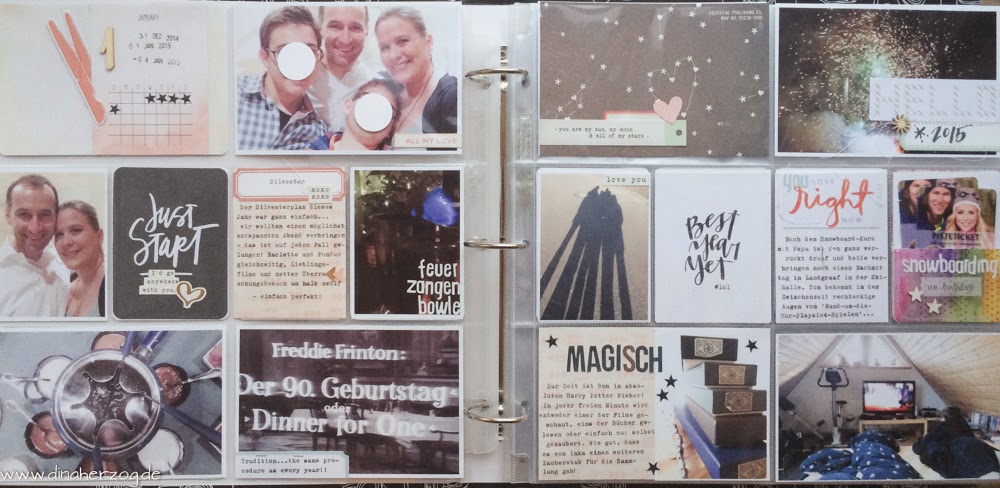 JANUARY
31 DEZ 2014
01 JAN 2015
-04 JAN 2015
1
ALL MY LOVE
JUST
START
I'd go
anywhere
with you.
Silvester
XOXO
XOXO
Der Silvesterplan dieses
Jahr war ganz einfach...
wir wollten einen möglichst
entspannten Abend verbringen
- das ist auf jeden Fall ge-
lungen! Raclette und Fondue
gleichzeitig, Lieblings-
filme und netter Überra-
schungsbesuch um halb zwölf
- einfach perfekt!
feuer
zangen
bowle
Freddie Frinton:
Der 90. Geburtstag
oder
Dinner for One
Tradition...the same pro-
cedure as every year!!
www.dinaherzog.de
CELESTIAL PUBLISHING CO.
- you are my sun, my moon
& all of my stars -
2015
love you
Best
year
yet
#lol
you LOVE
right
NOW
Nach dem Snowboard-Kurs
mit Papa ist Ben ganz ver-
rückt drauf und beide ver-
bringen noch einen Nachmit
tag in Landgraaf in der Ski-
halle. Tom bekommt in der
Zwischenzeit rechteckige
Augen vom 'Rund-um-die-
Uhr-Playsi4-Spielen'...
PISTETICKET
snowboarding
on holiday
MAGISCH
Zur Zeit ist Ben im abso-
luten Harry Potter Fieber!
In jeder freien Minute wird
entweder einer der Filme ge-
schaut, eins der Bücher ge-
lesen oder einfach nur selbst
gezaubert. Wie gut, dass
es von Inka einen weiteren
Zauberstab für die Samm-
lung gab!